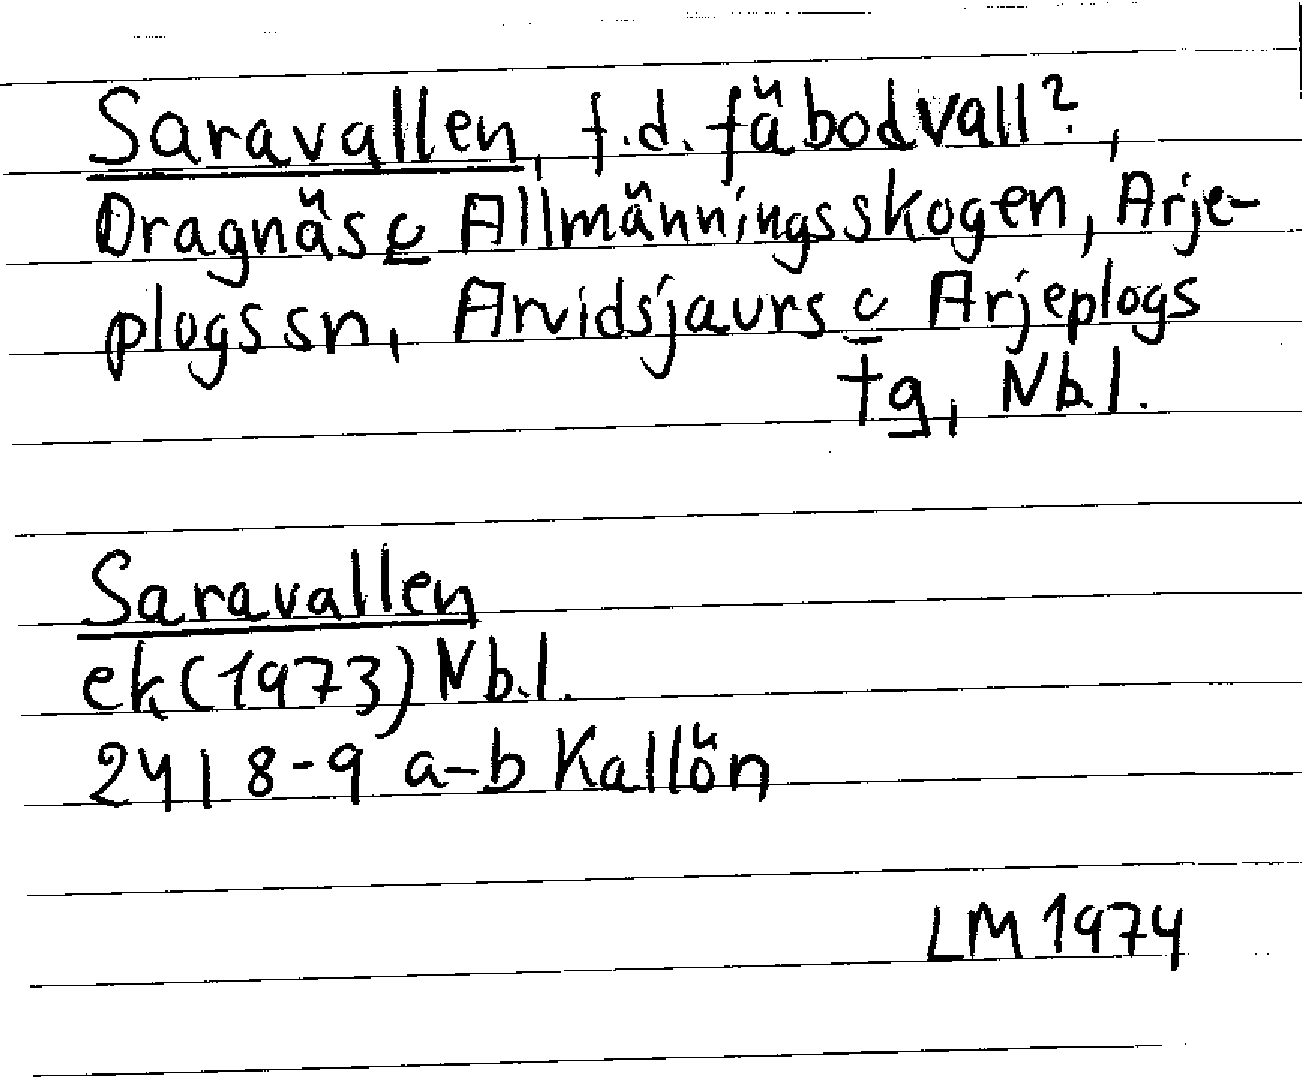 Saravallen, f.d. fäbodvall?,
Dragnäs c Allmänningsskogen, Arje-
plogs sn, Arvidsjaurs c Arjeplogs
tg, Nb.l.
Saravallen
ek (1973) Nb.l.
24 I 8-9 a-b Kallön
LM 1974